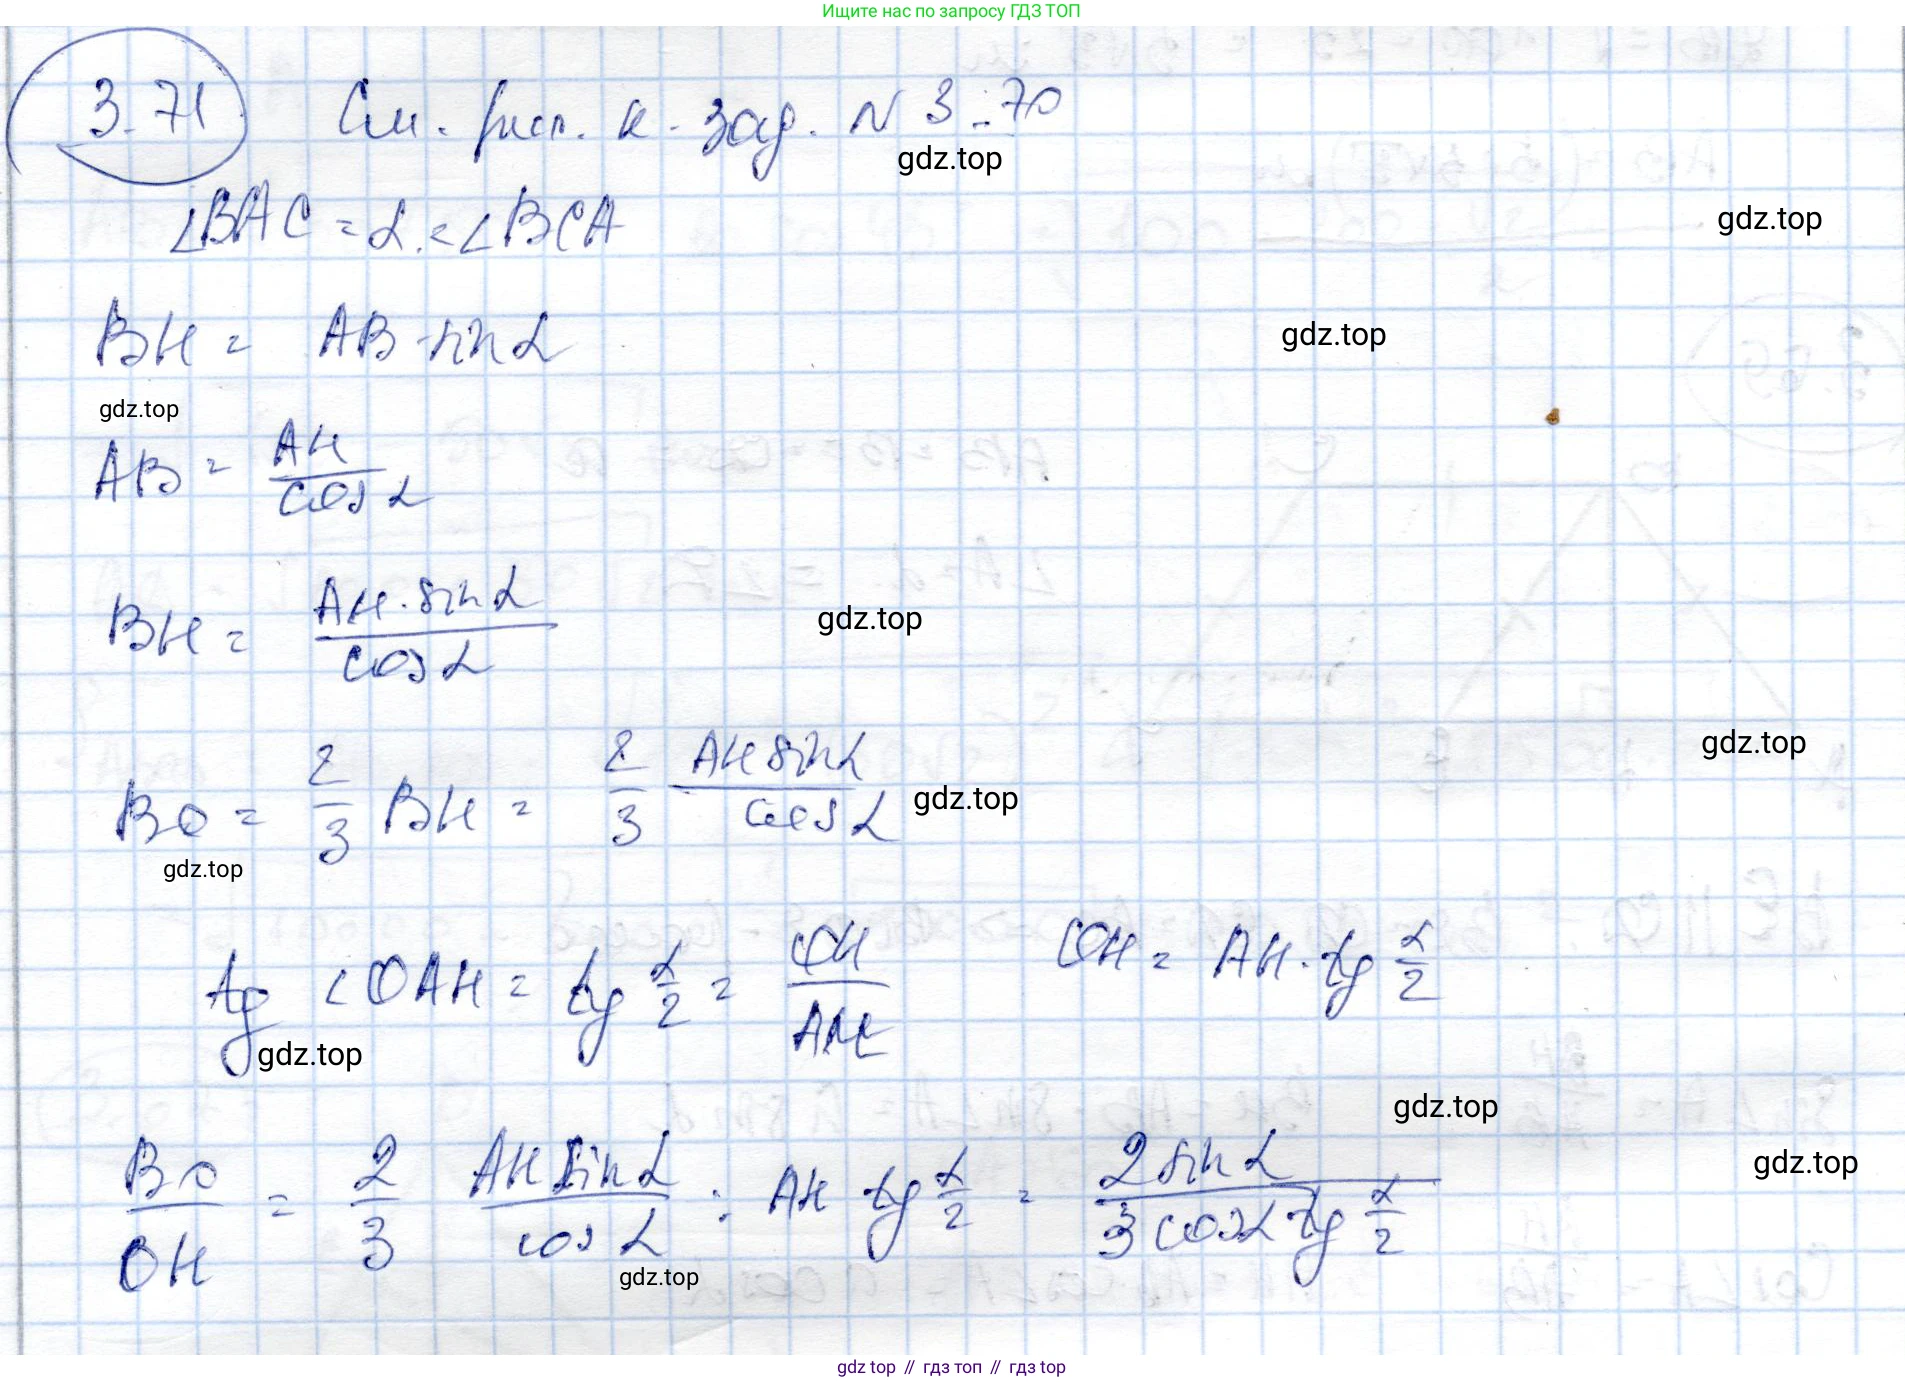 Ищите нас по запросу ГДЗ ТОП
3.71 См. рис. к. зад. N 3.70
gdz.top
gdz.top
∠BAC = α. = ∠BCA
BH = AB · sin α
gdz.top
gdz.top
AB = AH / cos α
BH = AH · sin α / cos α
gdz.top
gdz.top
BO = 2/3 BH = 2/3 AH sin α / cos α
gdz.top
gdz.top
tg ∠OAH = tg α/2 = OH / AH OH = AH · tg α/2
gdz.top
gdz.top
gdz.top
BO / OH = 2/3 AH sin α / cos α : AH tg α/2 = 2 sin α / 3 cos α tg α/2
gdz.top
gdz top // гдз топ // гдз top